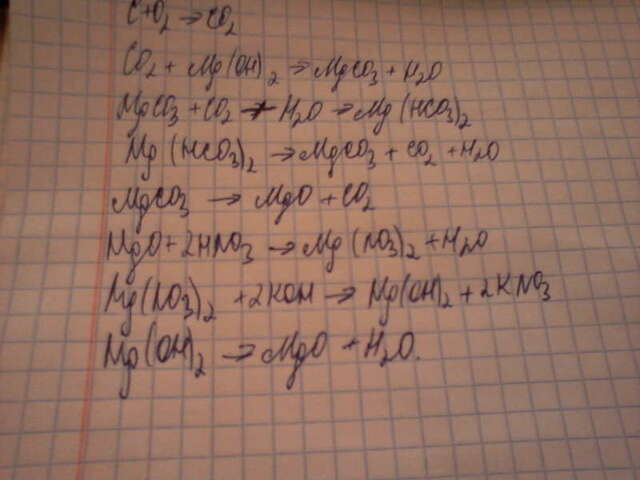 C+O₂ → CO₂
CO₂ + Mg(OH)₂ → MgCO₃ + H₂O
MgCO₃ + CO₂ + H₂O → Mg(HCO₃)₂
Mg(HCO₃)₂ → MgCO₃ + CO₂ + H₂O
MgCO₃ → MgO + CO₂
MgO + 2HNO₃ → Mg(NO₃)₂ + H₂O
Mg(NO₃)₂ + 2KOH → Mg(OH)₂ + 2KNO₃
Mg(OH)₂ → MgO + H₂O.